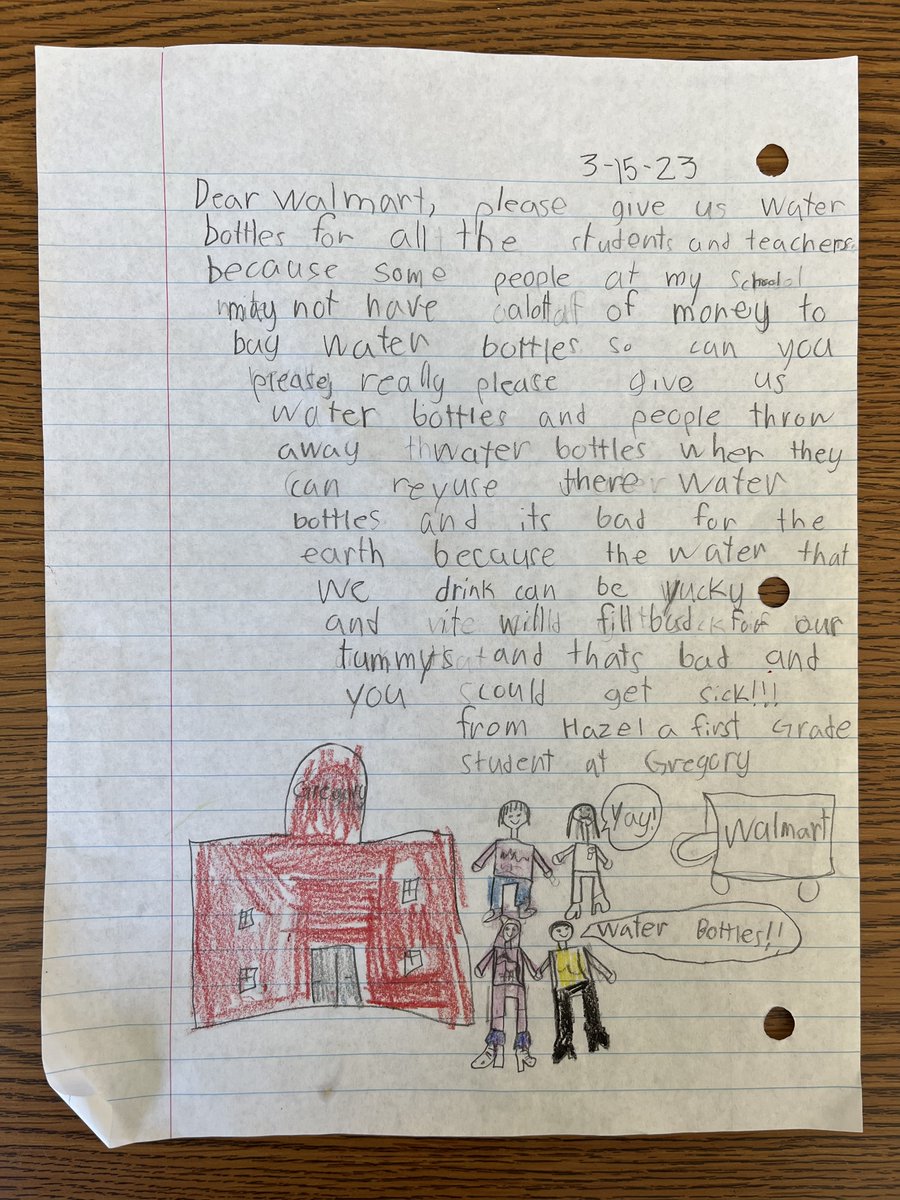 3-15-23
Dear Walmart, please give us water
bottles for all the students and teachers.
because some people at my school
may not have alot of money to
bay water bottles so can you
please, really please give us
water bottles and people throw
away water bottles when they
can reyuse there water
bottles and its bad for the
earth because the water that
we drink can be yucky
and will fill bad for our
tummys and thats bad and
you could get sick!!!
from Hazel a first Grade
student at Gregory
Gregory
Yay!
Walmart
Water Bottles!!